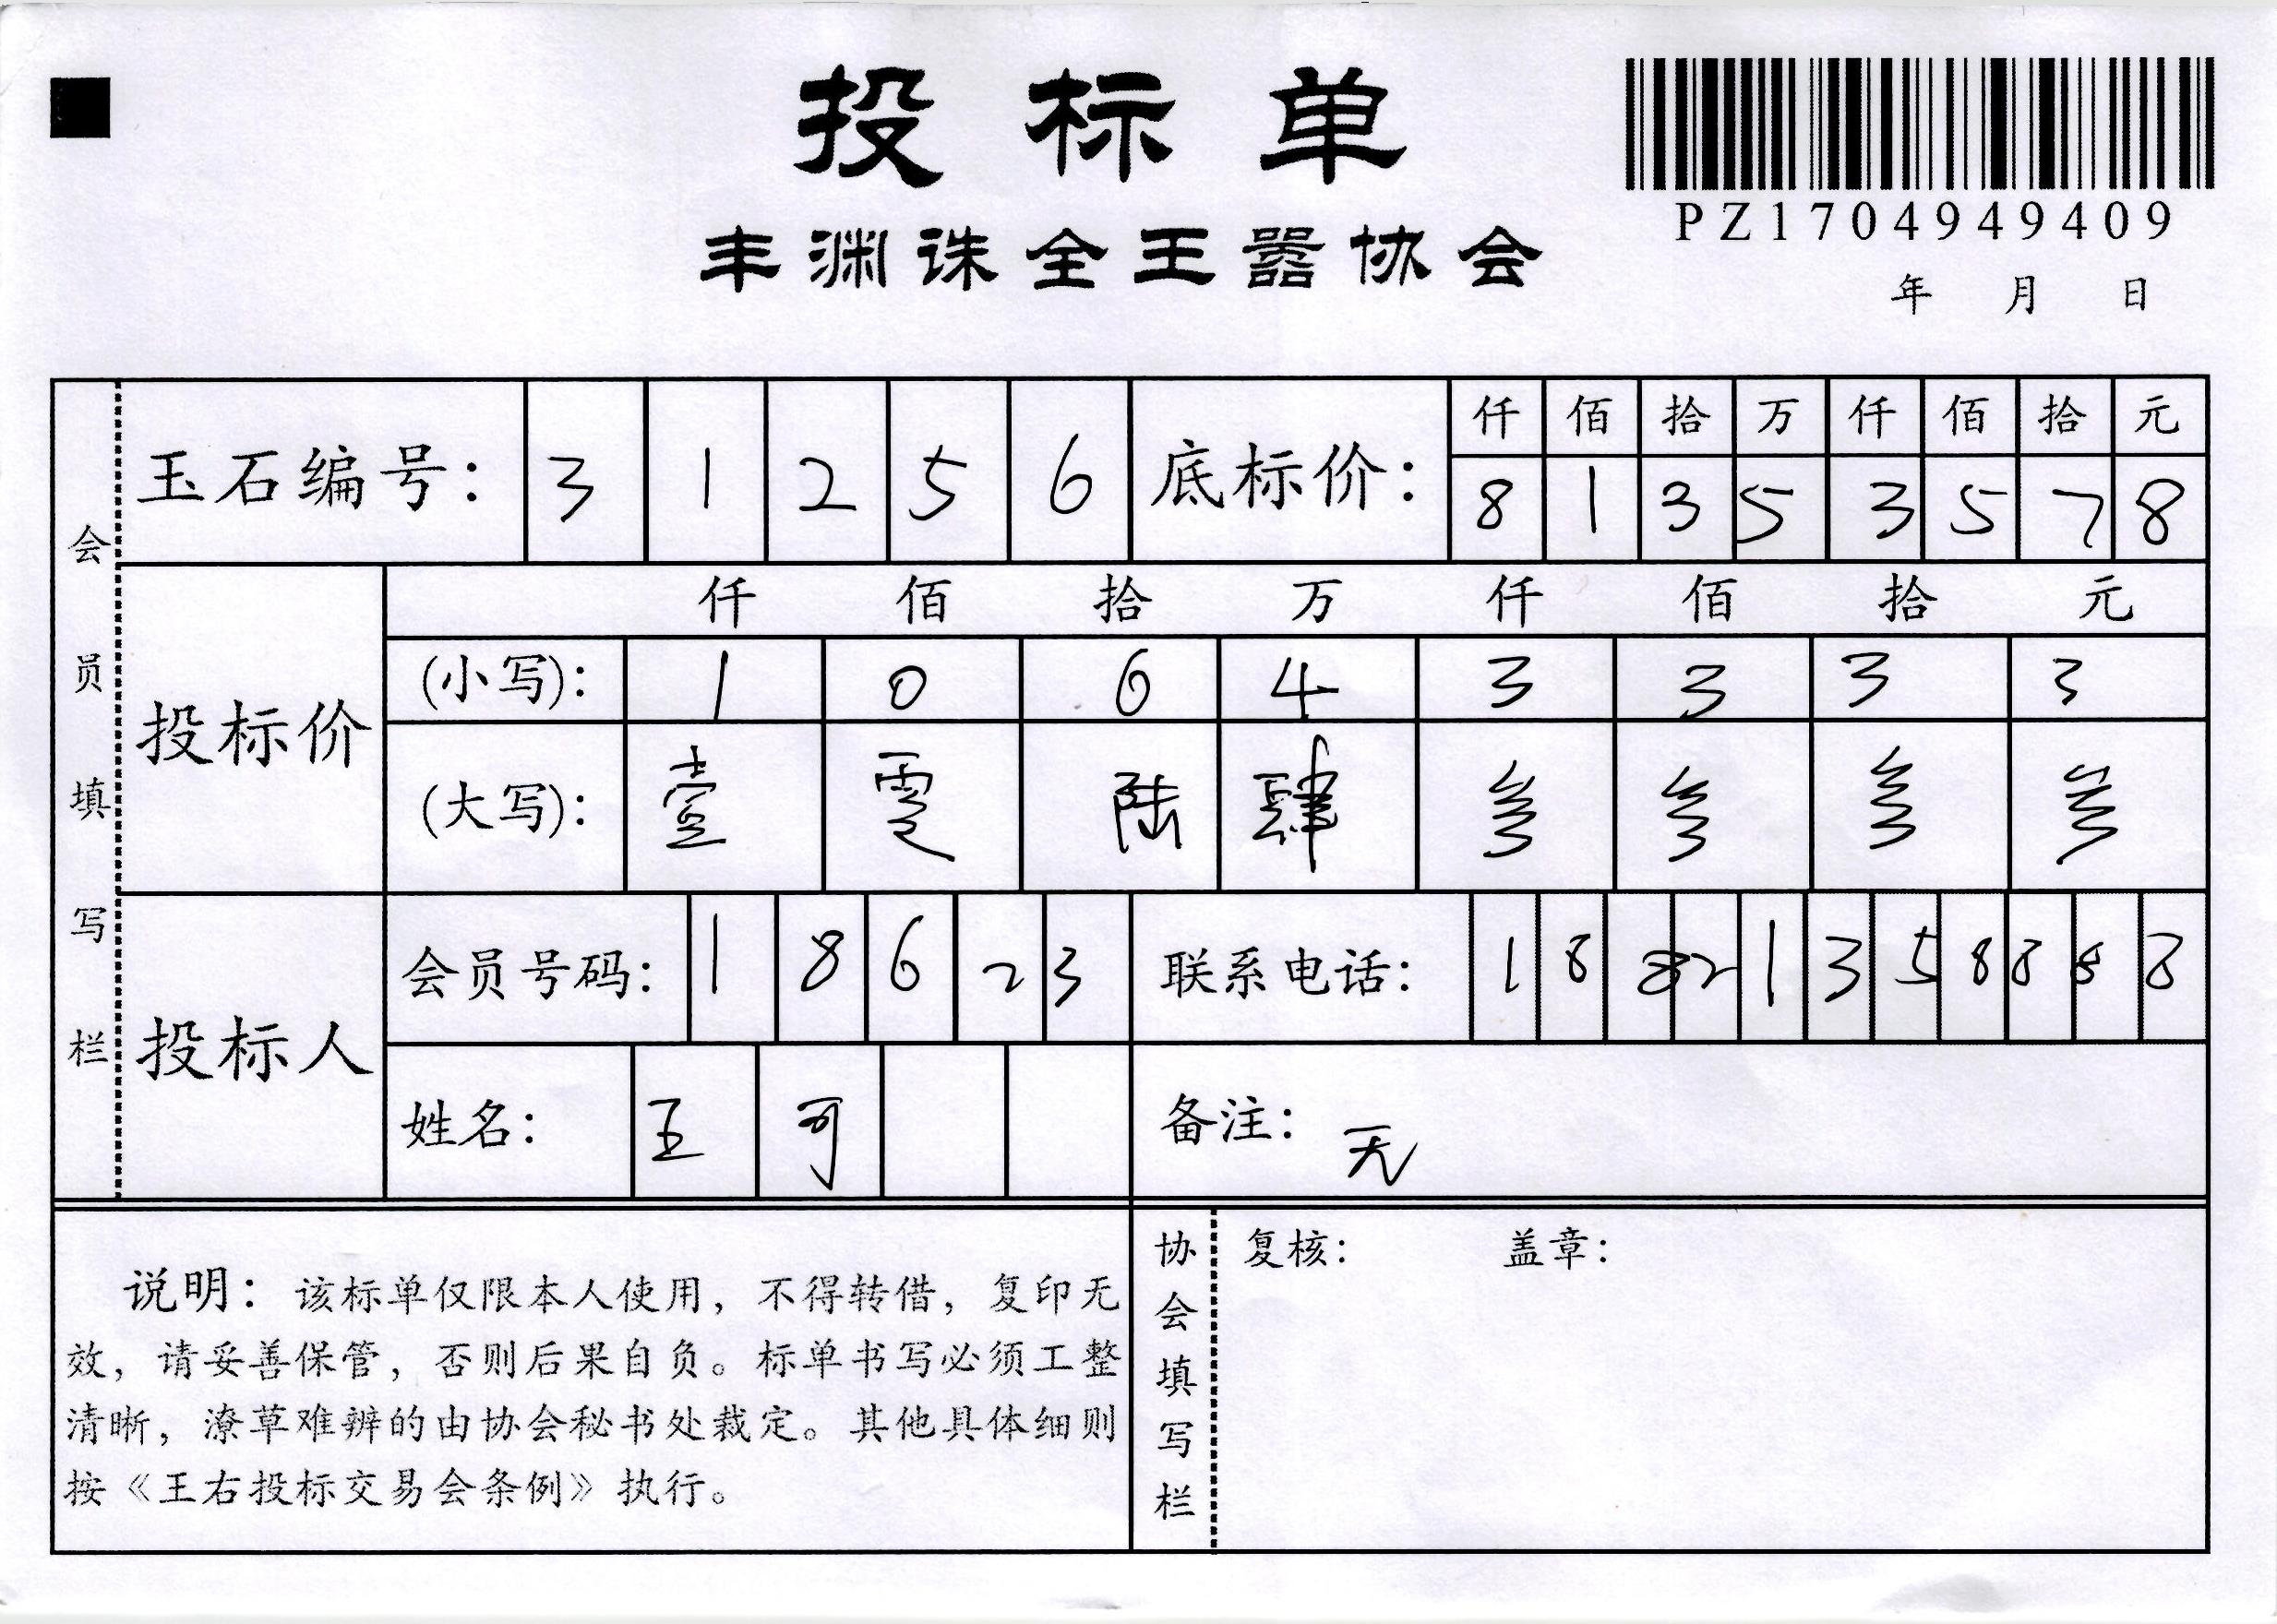 投标单
PZ1704949409
丰渊诛全王嚣协会
年 月 日
会员填写栏
玉石编号: 3 1 2 5 6
底标价: 仟 佰 拾 万 仟 佰 拾 元
8 1 3 5 3 5 7 8
投标价
仟 佰 拾 万 仟 佰 拾 元
(小写): 1 0 6 4 3 3 3 3
(大写): 壹 零 陆 肆 叁 叁 叁 叁
投标人
会员号码: 1 8 6 2 3
联系电话: 1 8 8 2 1 3 5 8 8 8 8
姓名: 王 可
备注: 无
说明: 该标单仅限本人使用, 不得转借, 复印无
效, 请妥善保管, 否则后果自负。标单书写必须工整
清晰, 潦草难辨的由协会秘书处裁定。其他具体细则
按《王右投标交易会条例》执行。
协会填写栏
复核: 盖章: